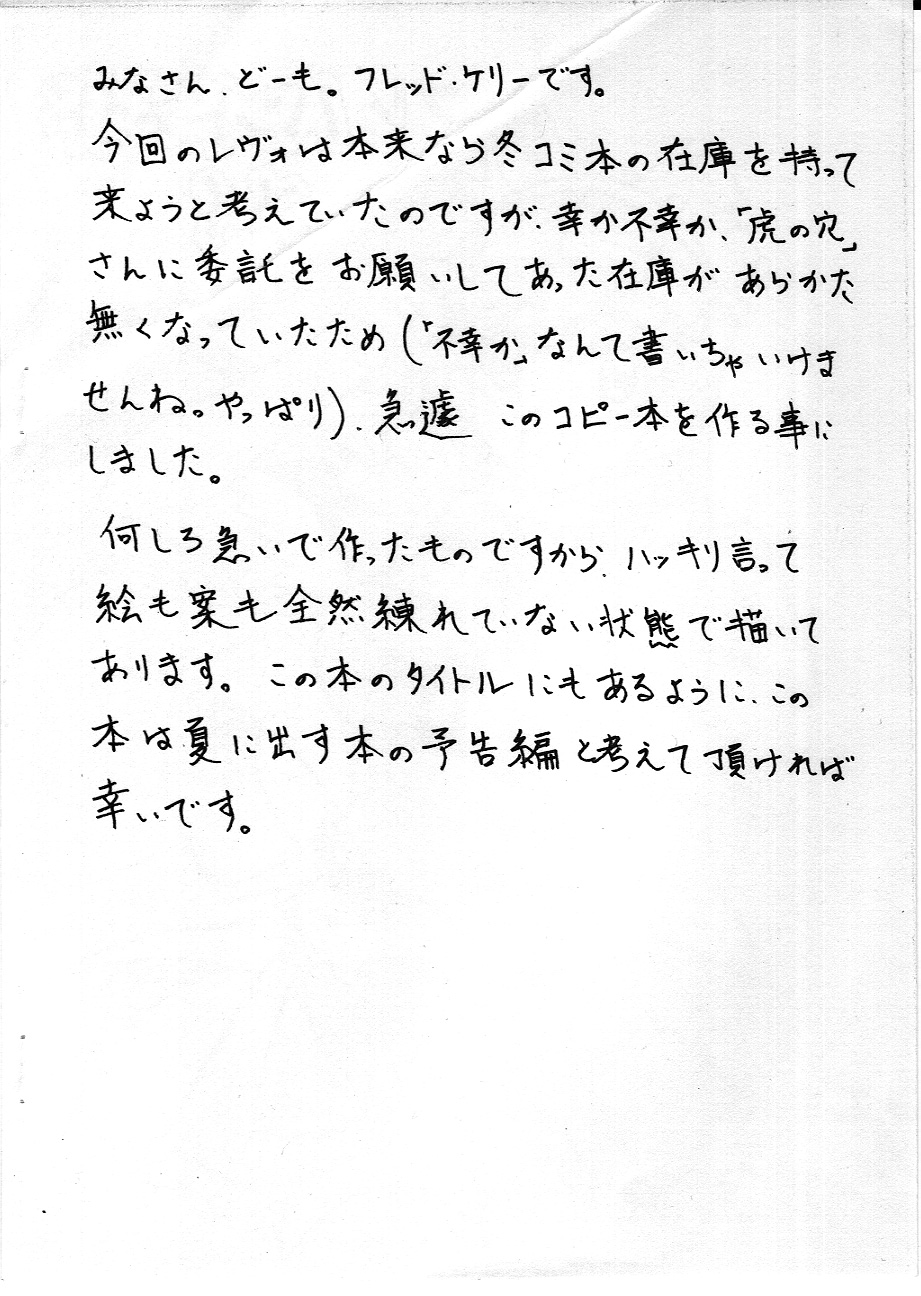 みなさん、どーも。フレッド・ケリーです。
今回のレヴォは本来なら冬コミ本の在庫を持って
来ようと考えていたのですが、幸か不幸か、「虎の穴」
さんに委託をお願いしてあった在庫があらかた
無くなっていたため(「不幸か」なんて書いちゃいけま
せんね。やっぱり)、急遽 このコピー本を作る事に
しました。
何しろ急いで作ったものですから、ハッキリ言って
絵も案も全然練れていない状態で描いて
あります。この本のタイトルにもあるように、この
本は夏に出す本の予告編と考えて頂ければ
幸いです。